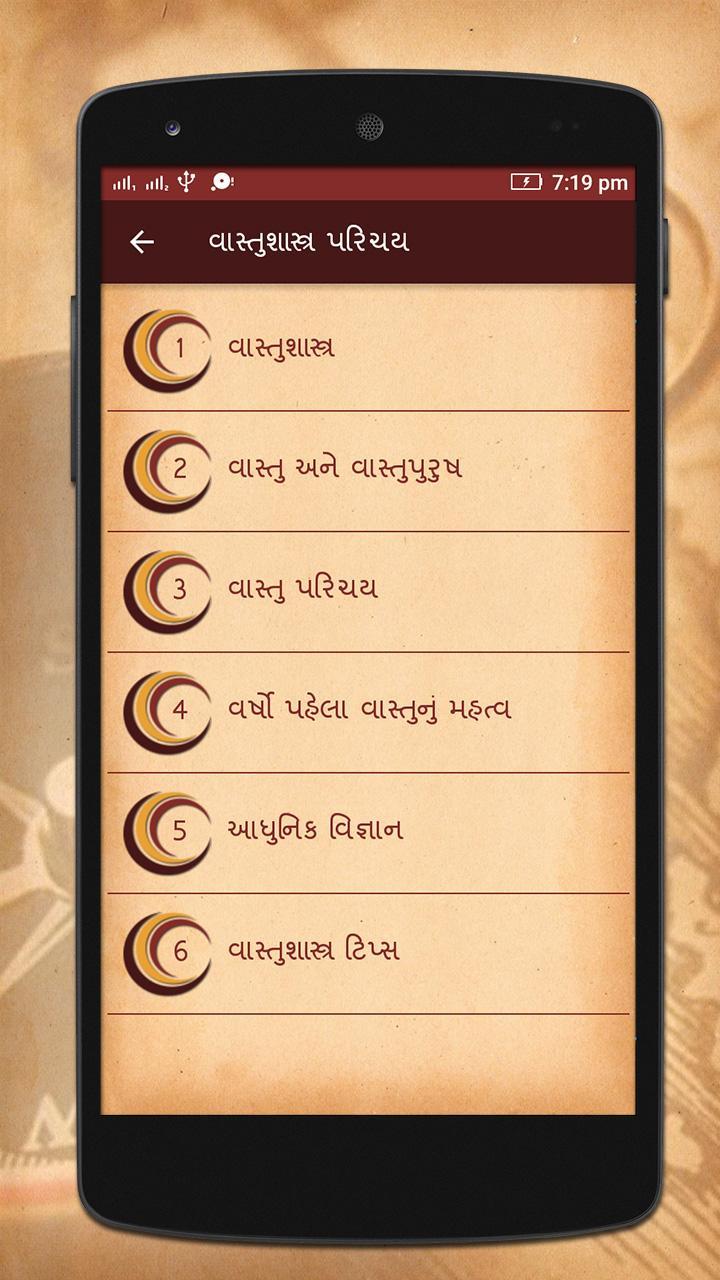 7:19 pm
વાસ્તુશાસ્ત્ર પરિચય
1 વાસ્તુશાસ્ત્ર
2 વાસ્તુ અને વાસ્તુપુરુષ
3 વાસ્તુ પરિચય
4 વર્ષો પહેલા વાસ્તુનું મહત્વ
5 આધુનિક વિજ્ઞાન
6 વાસ્તુશાસ્ત્ર ટિપ્સ